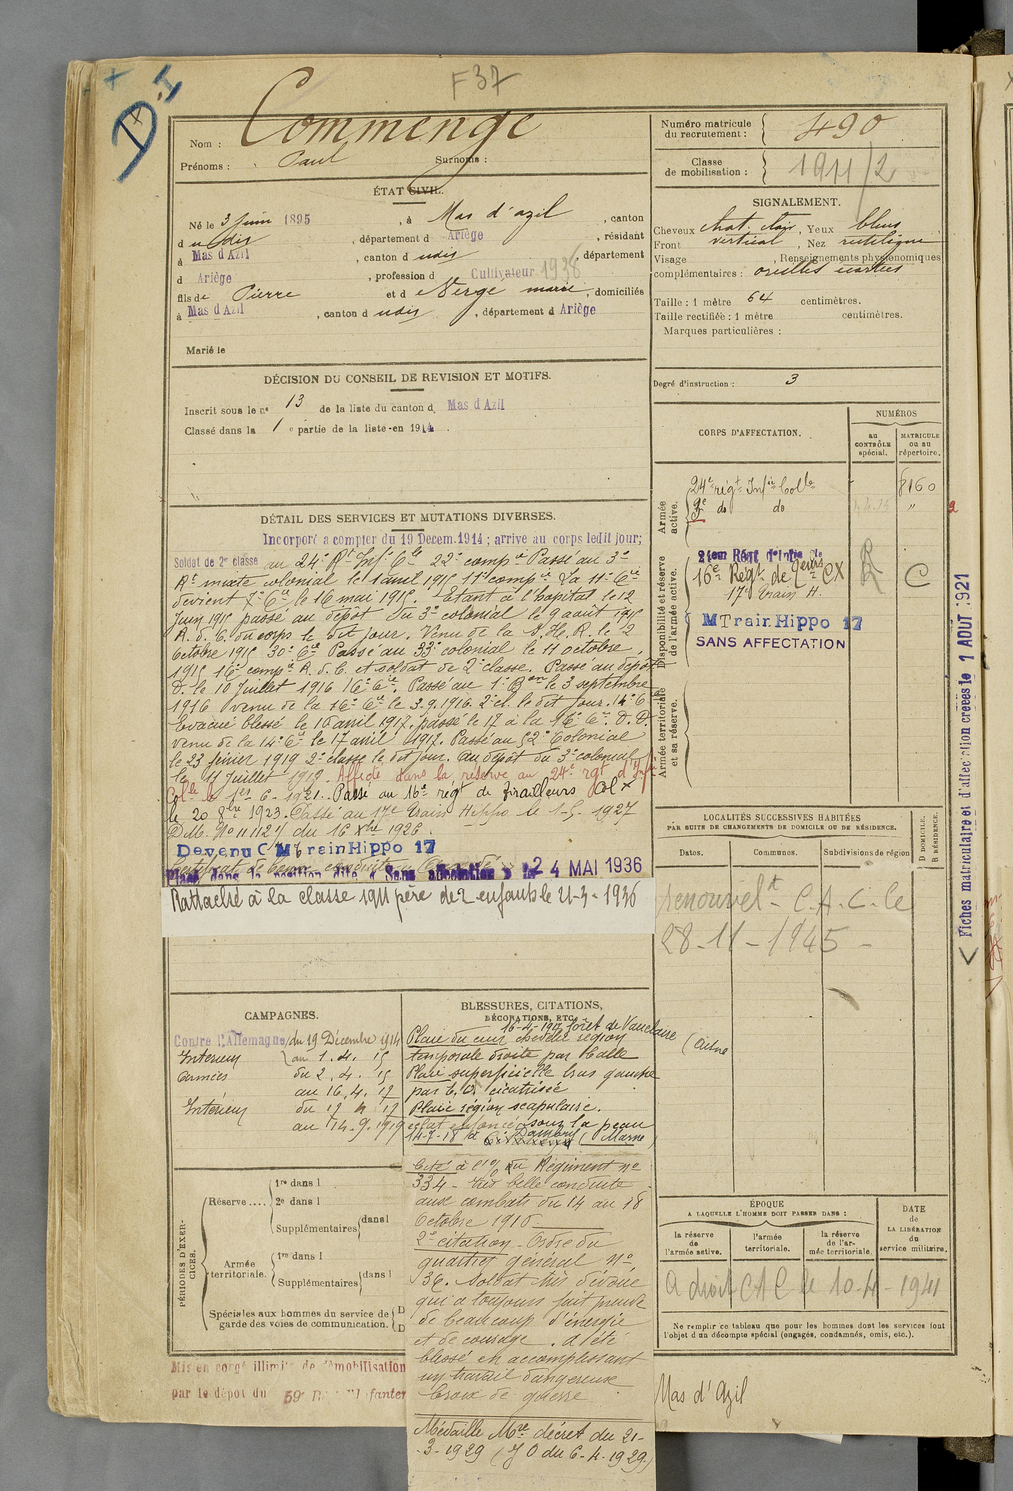 F 37
D.I
Nom : Commenge
Prénoms : Paul Surnoms :
ÉTAT CIVIL.
Né le 3 juin 1895, à Mas d'azil, canton
d udis, département d Ariège, résidant
à Mas d'Azil, canton d udis, département
d Ariège, profession d Cultivateur 1938
fils de Pierre et d Verge marie, domiciliés
à Mas d'Azil, canton d udis, département d Ariège
Marié le
DÉCISION DU CONSEIL DE REVISION ET MOTIFS.
Inscrit sous le nº 13 de la liste du canton d Mas d'Azil
Classé dans la 1e partie de la liste en 1914.
DÉTAIL DES SERVICES ET MUTATIONS DIVERSES.
Incorporé a compter du 19 Décem.1914; arrivé au corps ledit jour;
Soldat de 2e classe au 24e Rt Infie Cle 22e compie Passé au 3e
Rt mixte colonial le 1 avril 1915 11e compie. La 11e Cie
devient Cie le 16 mai 1915. Etant à l'hopital le 12
Juin 1915 passé au dépôt du 3e colonial le 9 août 1915
A. d. C. du corps le dit jour. Venu de la S.H.R. le 2
Octobre 1915 30e Cie Passé au 33e colonial le 11 octobre
1915 16e compie A. d. C. et soldat de 2e classe. Passé au dépôt
D. le 10 Juillet 1916 16e Cie. Passé au 1er Bon le 3 septembre
1916 venu de la 16e Cie le 3.9.1916. 2e cl. le dit jour. 14e Cie
Evacué blessé le 16 avril 1917, passé le 17 à la 16e Cie. D. D.
venu de la 14e Cie le 17 avril 1917. Passé au 52e Colonial
le 23 février 1919 2e classe le dit jour. Au dépôt du 3e colonial
le 11 Juillet 1919. Affecté dans la réserve au 24e rgt d'Infie
Colle le 1er-6-1921. Passé au 16e régt de tirailleurs Col x
le 20 8bre 1923. Passé au 17e Train Hippo le 1-5-1927
D.M. No 11112/ du 16 Xbre 1926.
Devenu C M Train Hippo 17
Placé dans la position dite « Sans affectation » le 24 MAI 1936
Rattaché à la classe 1911 père de 2 enfants le 21-3-1936
CAMPAGNES.
Contre l'Allemagne du 19 Décembre 1914
Intérieur au 1. 4. 15
Armées du 2. 4. 15
au 16. 4. 17
Intérieur du 17 4 17
au 14. 9. 1919
BLESSURES, CITATIONS,
DÉCORATIONS, ETC.
16-4-1917 forêt de Vauclaire (Aisne
Plaie du cuir chevelu région
temporale droite par balle
Plaie superficielle bras gauche
par E.O. cicatrisée
Plaie région scapulaire.
éclat enfoncé sous la peau
14-7-18 à Damery (Marne)
Cité à l'o/ du Régiment no
334 - très belle conduite
aux combats du 14 au 18
Octobre 1916
2e citation - Ordre du
quartier général No
36. Soldat très dévoué
qui a toujours fait preuve
de beaucoup d'énergie
et de courage. a été
blessé en accomplissant
un travail dangereux
Croix de guerre
Médaille Mre décret du 21-
-3-1929 (J O du 6-4-1929)
PÉRIODES D'EXERCICES.
Réserve....
1re dans l
2e dans l
Supplémentaires dans l
Armée territoriale.
1re dans l
Supplémentaires dans l
Spéciales aux hommes du service de
garde des voies de communication.
D
D
Mis en congé illimité de démobilisation
par le dépôt du 59e
Numéro matricule
du recrutement : 490
Classe
de mobilisation : 1911/2
SIGNALEMENT.
Cheveux chat. clair, Yeux bleus
Front vertical, Nez rectiligne
Visage , Renseignements physionomiques
complémentaires : oreilles écartées
Taille : 1 mètre 64 centimètres.
Taille rectifiée : 1 mètre centimètres.
Marques particulières :
Degré d'instruction : 3
CORPS D'AFFECTATION.
NUMÉROS
au CONTRÔLE spécial.
MATRICULE ou au répertoire.
Armée active.
24e régt Infie Colle 8160
3e do do "
Disponibilité et réserve de l'armée active.
16e Régt de Teurs CX C
17e Train H.
M Train Hippo 17
SANS AFFECTATION
Armée territoriale et sa réserve.
LOCALITÉS SUCCESSIVES HABITÉES
PAR SUITE DE CHANGEMENTS DE DOMICILE OU DE RÉSIDENCE.
Dates. Communes. Subdivisions de région
D DOMICILE.
R RÉSIDENCE.
renouvelt C.A.C. le
28-11-1945
ÉPOQUE
A LAQUELLE L'HOMME DOIT PASSER DANS :
la réserve de l'armée active.
l'armée territoriale.
la réserve de l'armée territoriale.
DATE de LA LIBÉRATION du service militaire.
a droit CAC le 10-4-1941
Ne remplir ce tableau que pour les hommes dont les services font
l'objet d'un décompte spécial (engagés, condamnés, omis, etc.).
Mas d'Azil
Fiches matriculaire et d'affectation créées le 1 AOUT 1921